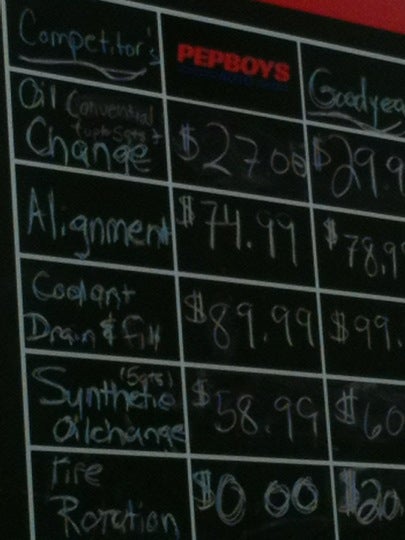 Competitor's PEPBOYS Goodyea
Oil Conventional
Change $27.00 $29.9
Alignment $74.99 $78.9
Coolant
Drain & Fill $89.99 $99.
Synthetic (5qts)
Oilchange $58.99 $60
Tire
Rotation $0.00 $20